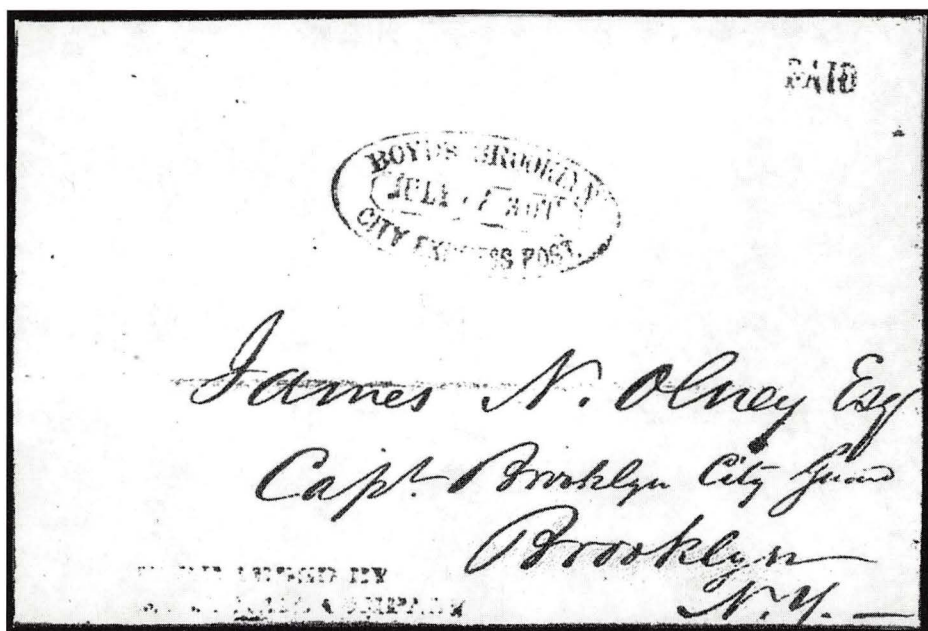 PAID
BOYD'S BROOKLYN
JULY
CITY EXPRESS POST.
James N. Olney Esq
Capt. Brooklyn City Guard
Brooklyn
N.Y. —
BY
COMPANY